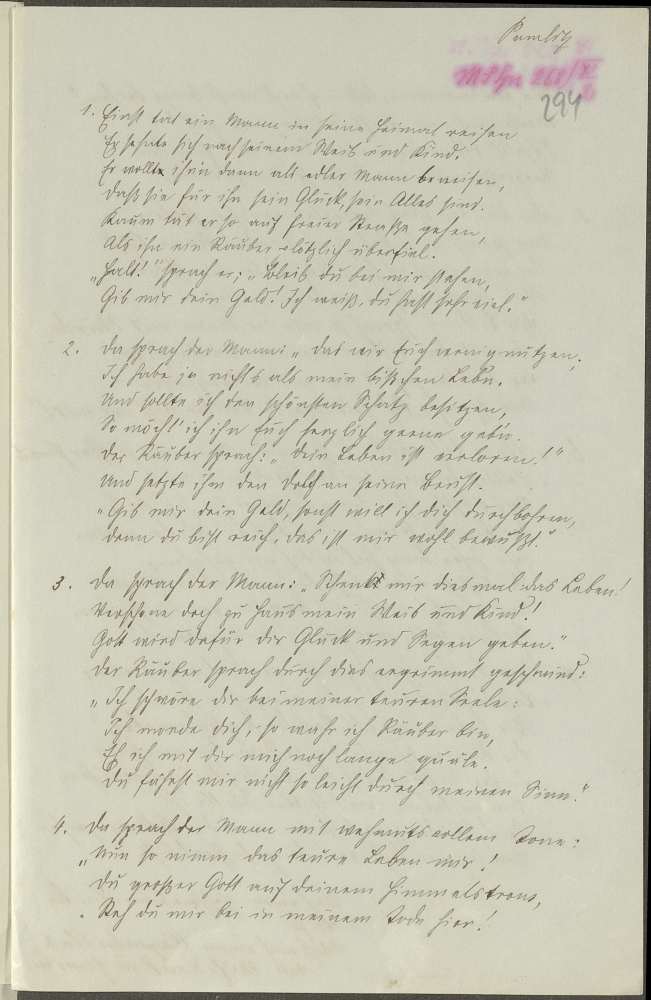 294
1. Einst tat ein Mann in seine Heimat reisen
Er sehnte sich nach seinem Weib und Kind.
Er wollte ihnen dann als edler Mann beweisen,
Daß sie für ihn sein Glück, sein Alles sind.
Kaum tut er so auf freier Straße gehen,
Als ihn ein Räuber plötzlich überfiel.
„Halt!" sprach er; „Bleib du bei mir stehen,
Gib mir dein Geld! Ich weiß, du hast sehr viel."
2. Da sprach der Mann: „Das wir Euch wenig nützen,
Ich habe ja nichts als mein bißchen Leb'n.
Und sollte ich den schönsten Schatz besitzen,
So möcht' ich ihn Euch herzlich gerne geb'n.
Der Räuber sprach: „Dein Leben ist verloren!"
Und setzte ihm den Dolch an seine Brust.
„Gib mir dein Geld, sonst will ich dich durchbohren,
denn du bist reich, das ist mir wohl bewußt."
3. Da sprach der Mann: „Schenkt mir diesmal das Leben!
Verschone doch zu Haus mein Weib und Kind!
Gott wird dafür dir Glück und Segen geben."
Der Räuber sprach durch dies ergrimmt geschwind:
„Ich schwöre dir bei meiner teuren Seele:
Ich morde dich, so wahr ich Räuber bin,
Eh ich mit dir mich noch lange quäle.
Du fährst mir nicht so leicht durch meinen Sinn."
4. Da sprach der Mann mit wehmutsvollem Tone:
„Nun so nimm das teure Leben mir!
Du großer Gott auf deinem Himmelstrone,
Steh du mir bei in meinem Tode hier!